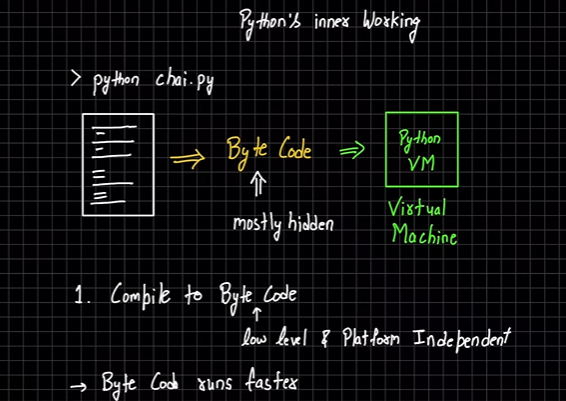 Python's inner Working
> python chai.py
⇒ Byte Code ⇒ Python
VM
mostly hidden
Virtual
Machine
1. Compile to Byte Code
low level & Platform Independent
→ Byte Cod runs faster